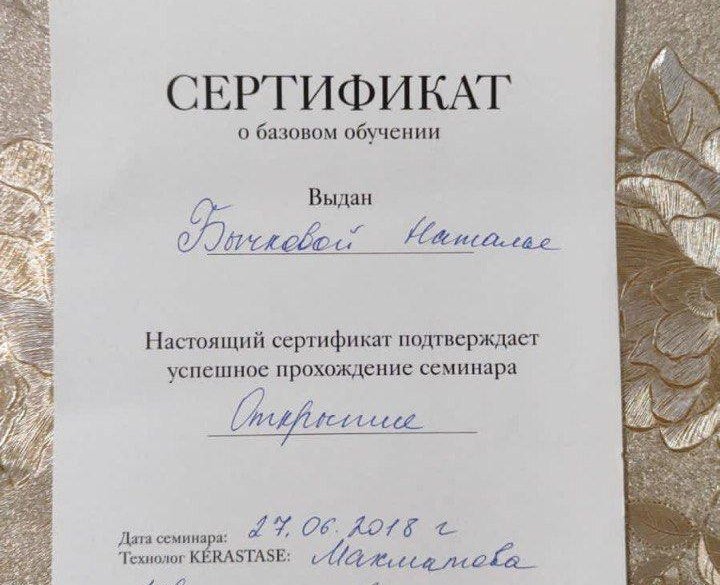 СЕРТИФИКАТ
о базовом обучении
Выдан
Бычковой Наталье
Настоящий сертификат подтверждает
успешное прохождение семинара
Открытие
Дата семинара: 27.06.2018 г
Технолог KÉRASTASE: Махматова